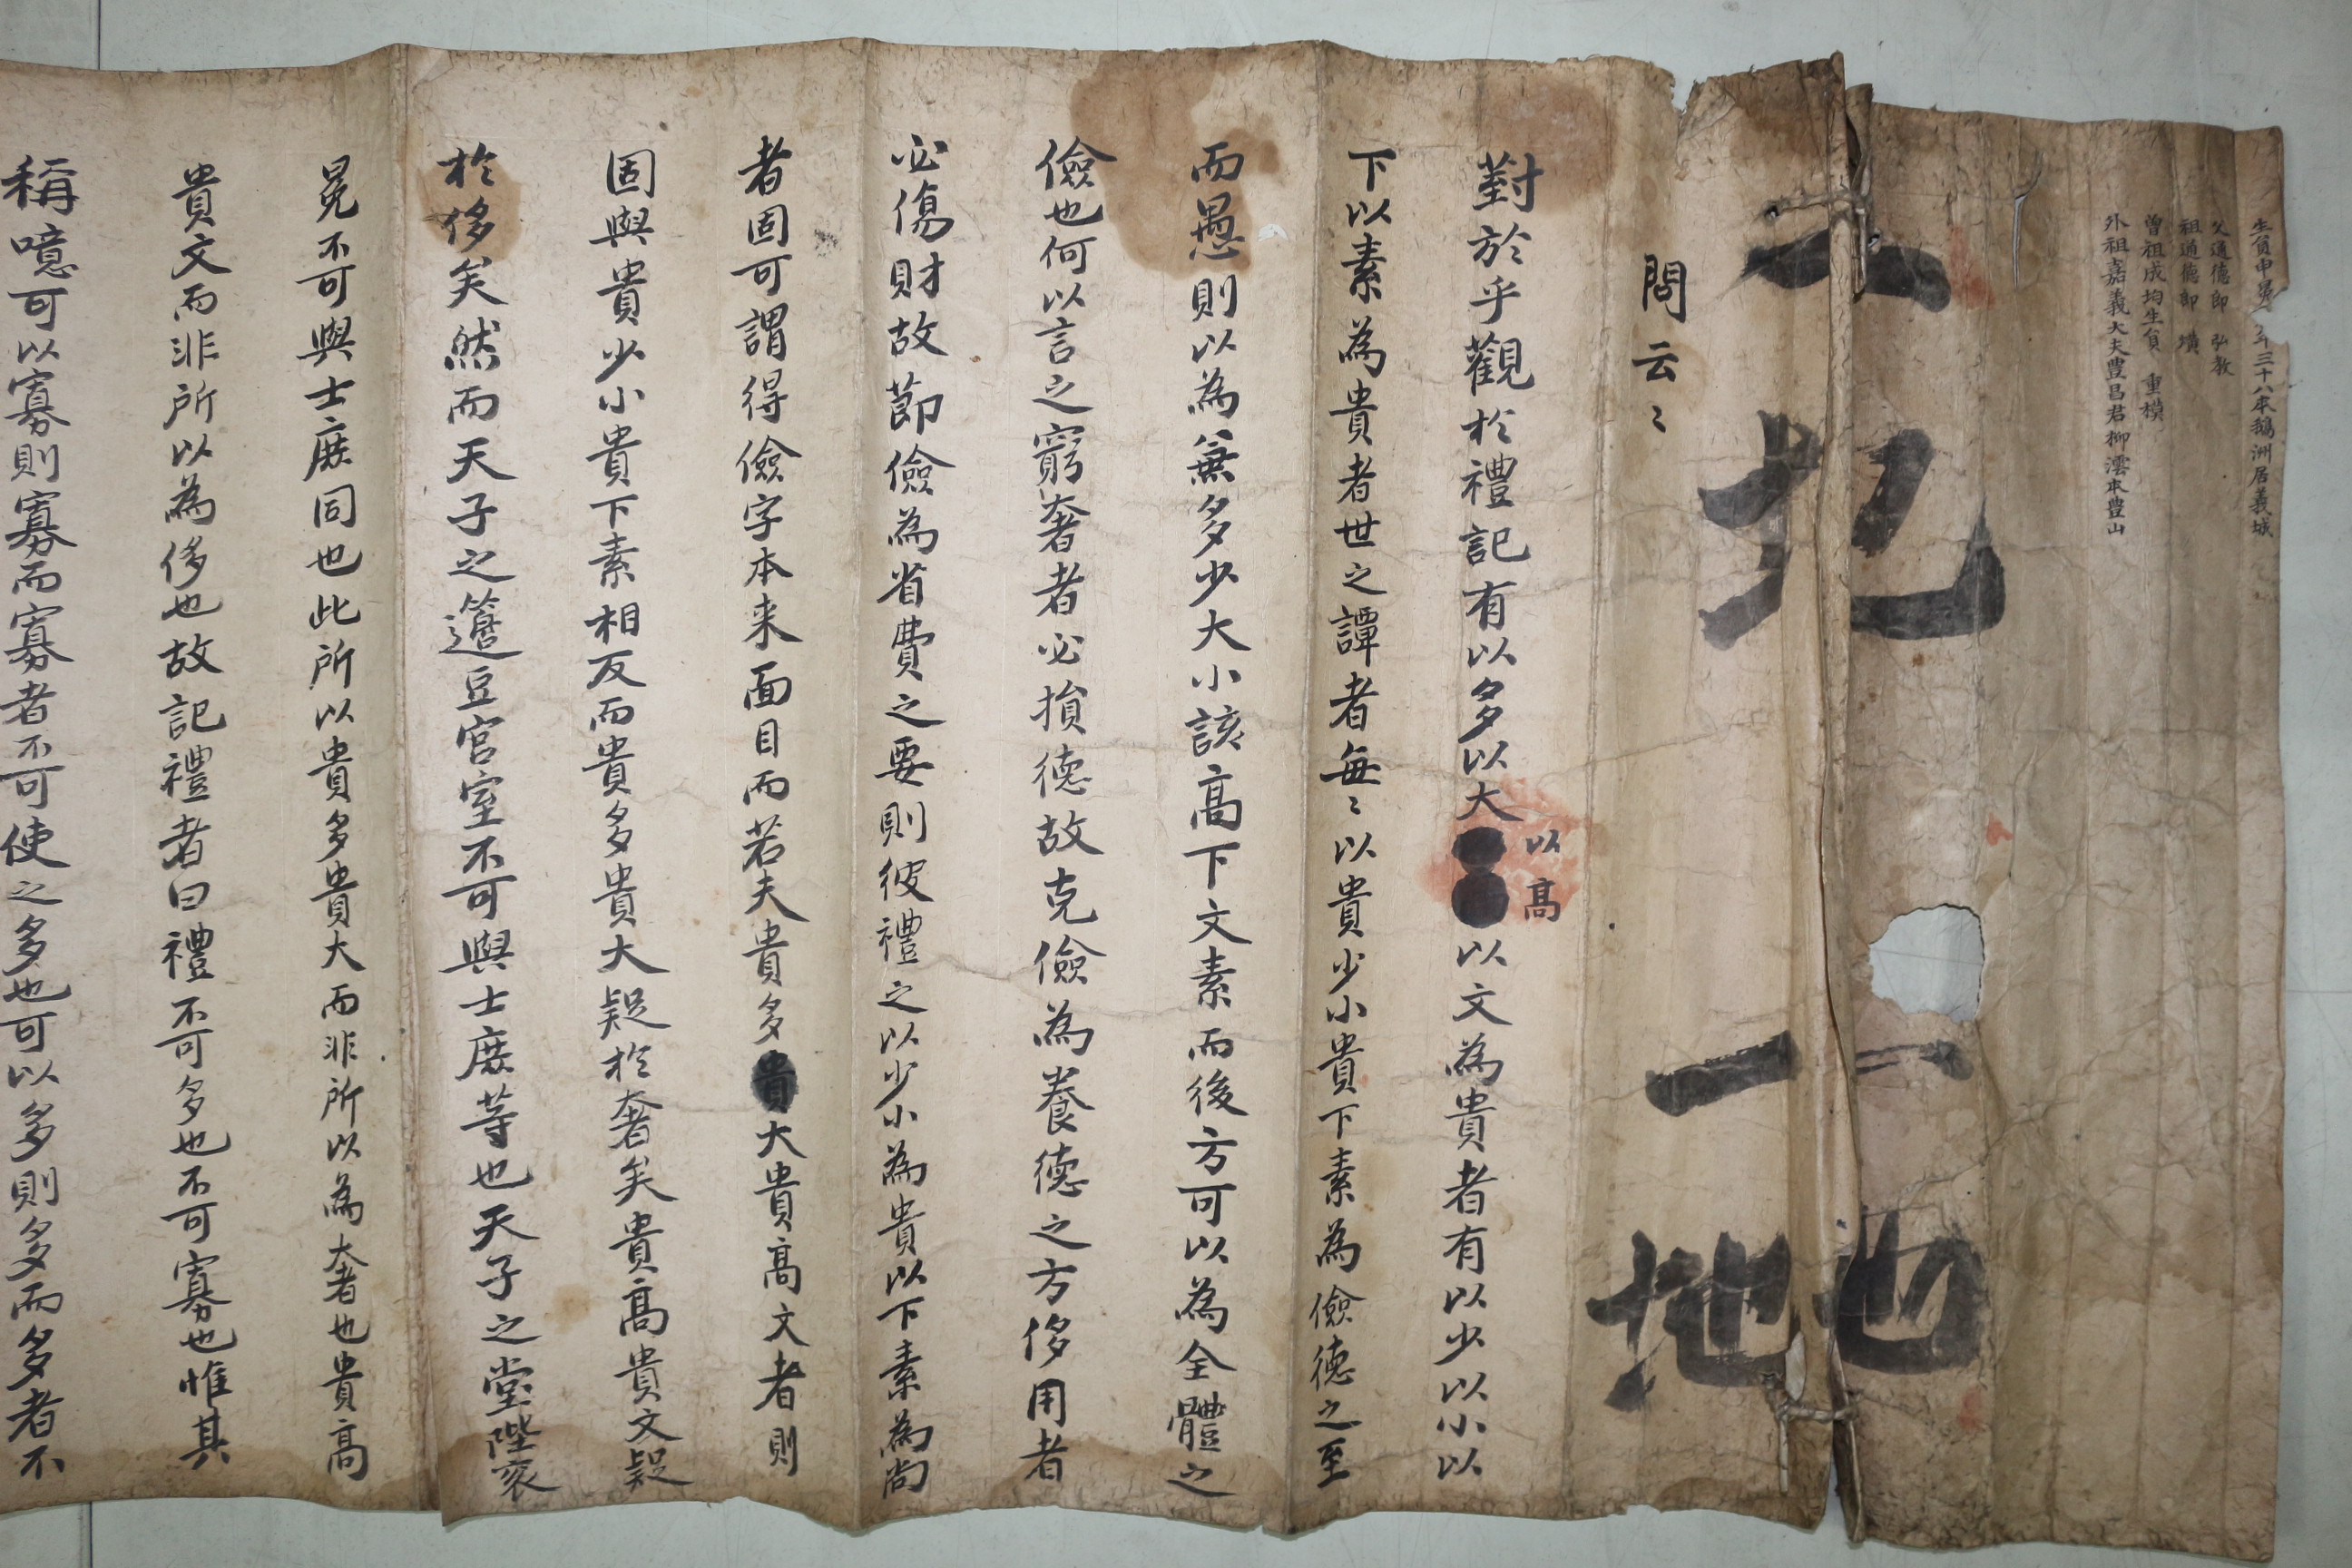 生員申㚅年三十八本鵝洲居義城
父通德郎 弘教
祖通德郎 㙻
曾祖成均生員 重模
外祖嘉義大夫豊昌君柳澐本豊山
北 一
地
問云〻
對於乎觀於禮記有以多以大以高以文為貴者有以少以小以
下以素為貴者世之譚者每〻以貴少小貴下素為儉德之至
而愚則以為兼多少大小該高下文素而後方可以為全體之
儉也何以言之窮奢者必損德故克儉為養德之方侈用者
必傷財故節儉為省費之要則彼禮之以少小為貴以下素為尚
者固可謂得儉字本来面目而若夫貴多貴大貴高文者則
固與貴少小貴下素相反而貴多貴大疑於奢矣貴高貴文疑
於侈矣然而天子之簠豆宮室不可與士庶等也天子之堂陛衮
冕不可與士庶同也此所以貴多貴大而非所以為奢也貴高
貴文而非所以為侈也故記禮者曰禮不可多也不可寡也惟其
稱噫可以寡則寡而寡者不可使之多也可以多則多而多者不